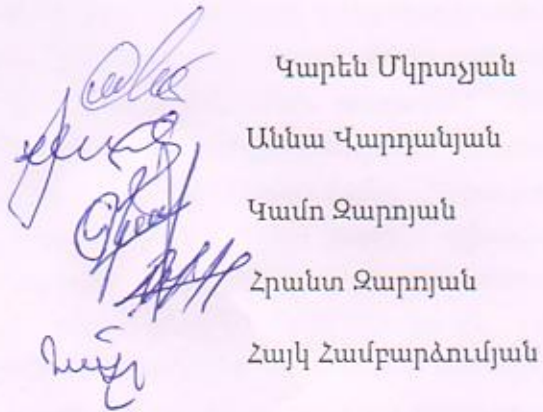 Կարեն Մկրտչյան
Աննա Վարդանյան
Կամո Զարոյան
Հրանտ Զարոյան
Հայկ Համբարձումյան